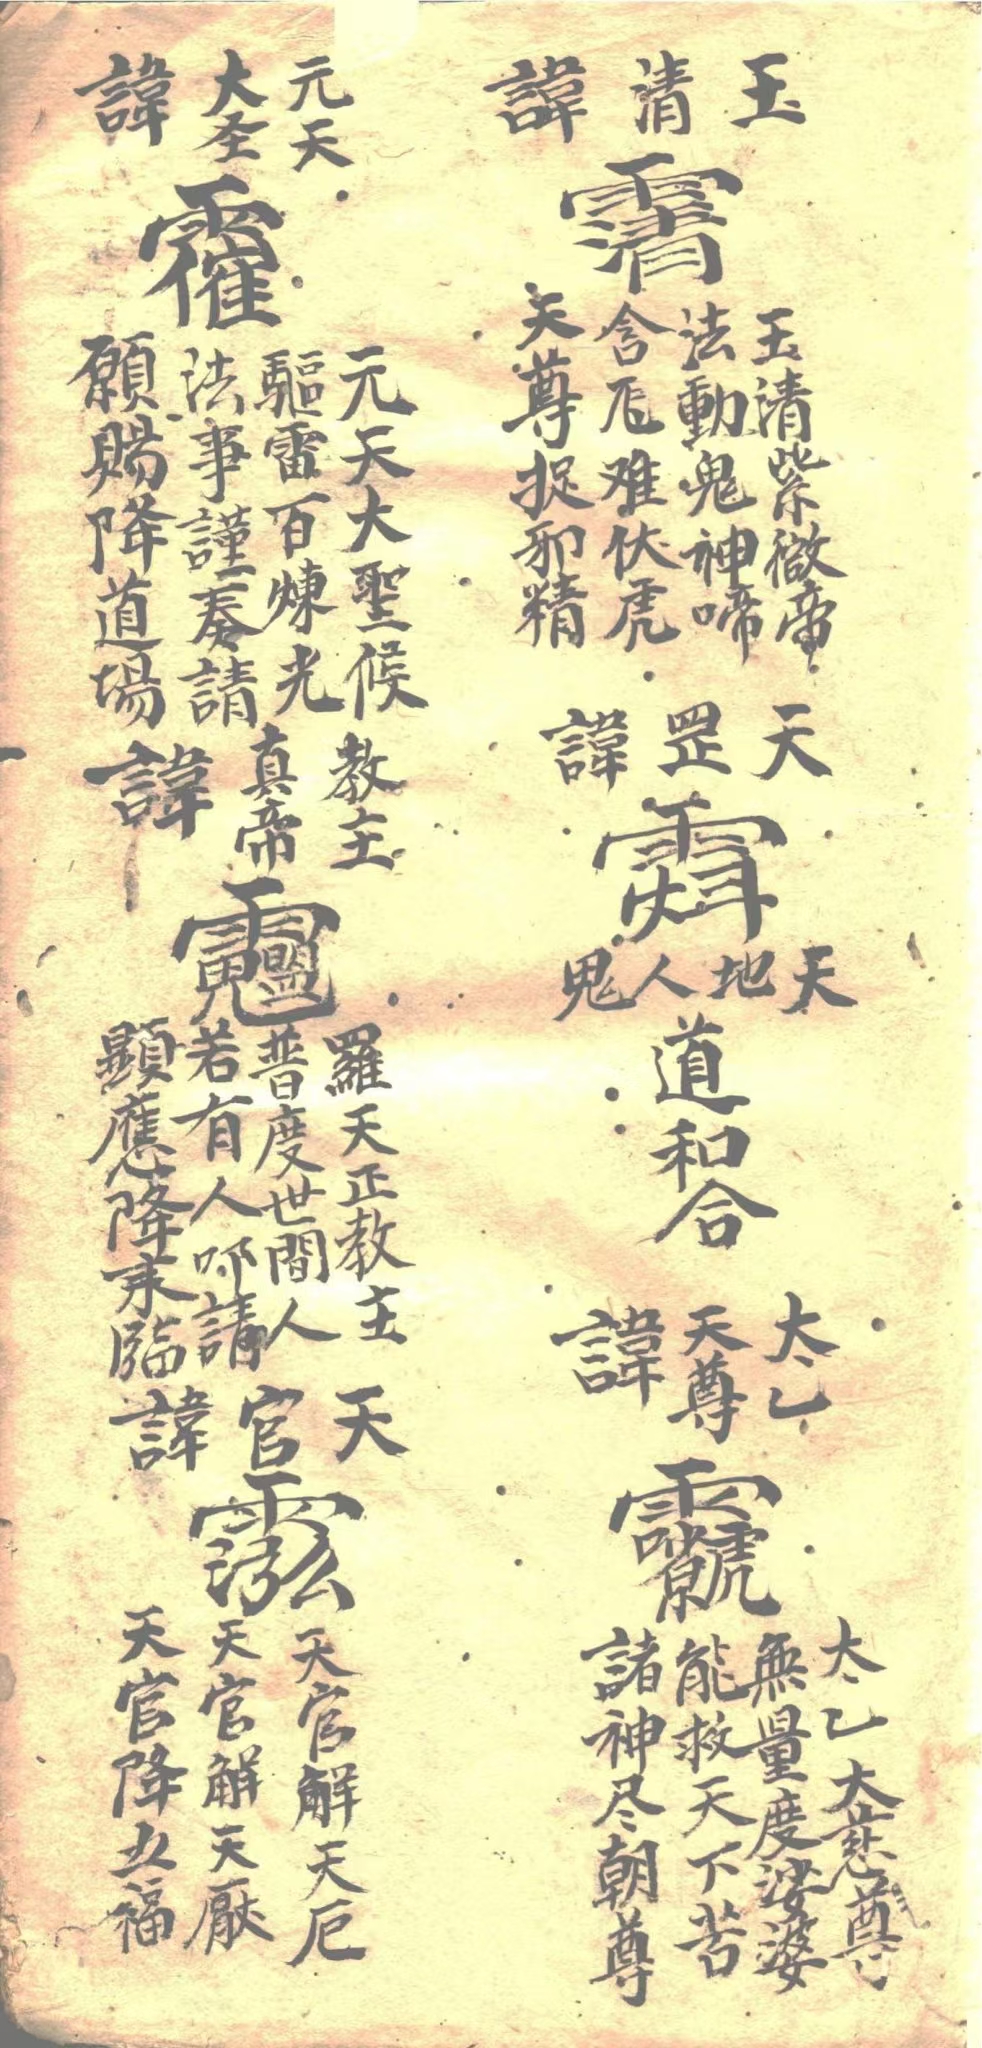 玉清諱
玉清紫微帝
法動鬼神啼
含厄难伏虎
天尊捉邪精
天罡諱
天地人鬼
道和合
太乙
天尊
諱
太乙大慈尊
無量度娑婆
能救天下苦
諸神尽朝尊
元天
大圣
諱
元天大聖候
驅雷百煉光
法事謹奏請
願賜降道場
教主
真帝
諱
羅天正教主
普度世間人
若有人叩請
顯應降来臨
天官諱
天官解天厄
天官解天厭
天官降五福